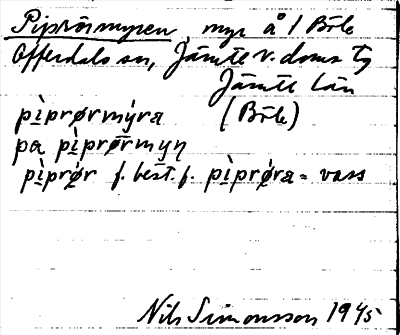 Piprörmyren, myr å 1 Böle
Offerdals sn, Jämtl. v. doms tg
Jämtl. län
pìprørmýra (Böle)
pa pìprørmyn
pìprør f. best. f. pìprøra = vass
Nils Simonsson 1945